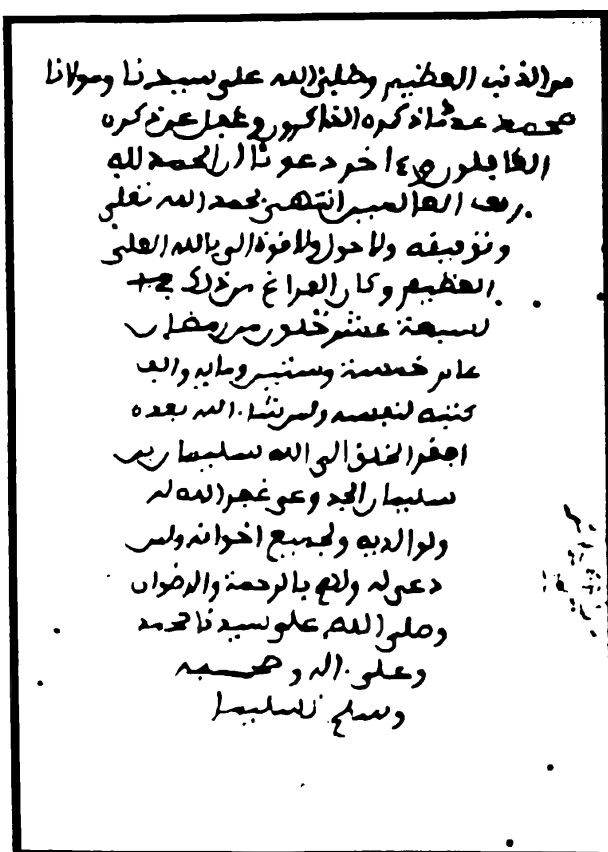 من الذنب العظيم وصلى الله على سيدنا ومولانا
محمد عدد ما ذكره الذاكرون وغفل عن ذكره
الغافلون واخر دعونا ان الحمد لله
رب العالمين انتهى بحمد الله تعلى
وتوفيقه ولا حول ولا قوة الى بالله العلي
العظيم وكان الفراغ من ذلك
لسبعة عشر خلون من رمضان
عام خمسة وستين ومايه والف
كتبه لنفسه ولمن شا الله بعده
افقر الخلق الى الله سليمان بن
سليمان غفر الله له
ولوالديه ولجميع اخوانه ولمن
دعى له ولهم بالرحمة والرضوان
وصلى الله على سيدنا محمد
وعلى اله وصحبه
وسلم تسليما